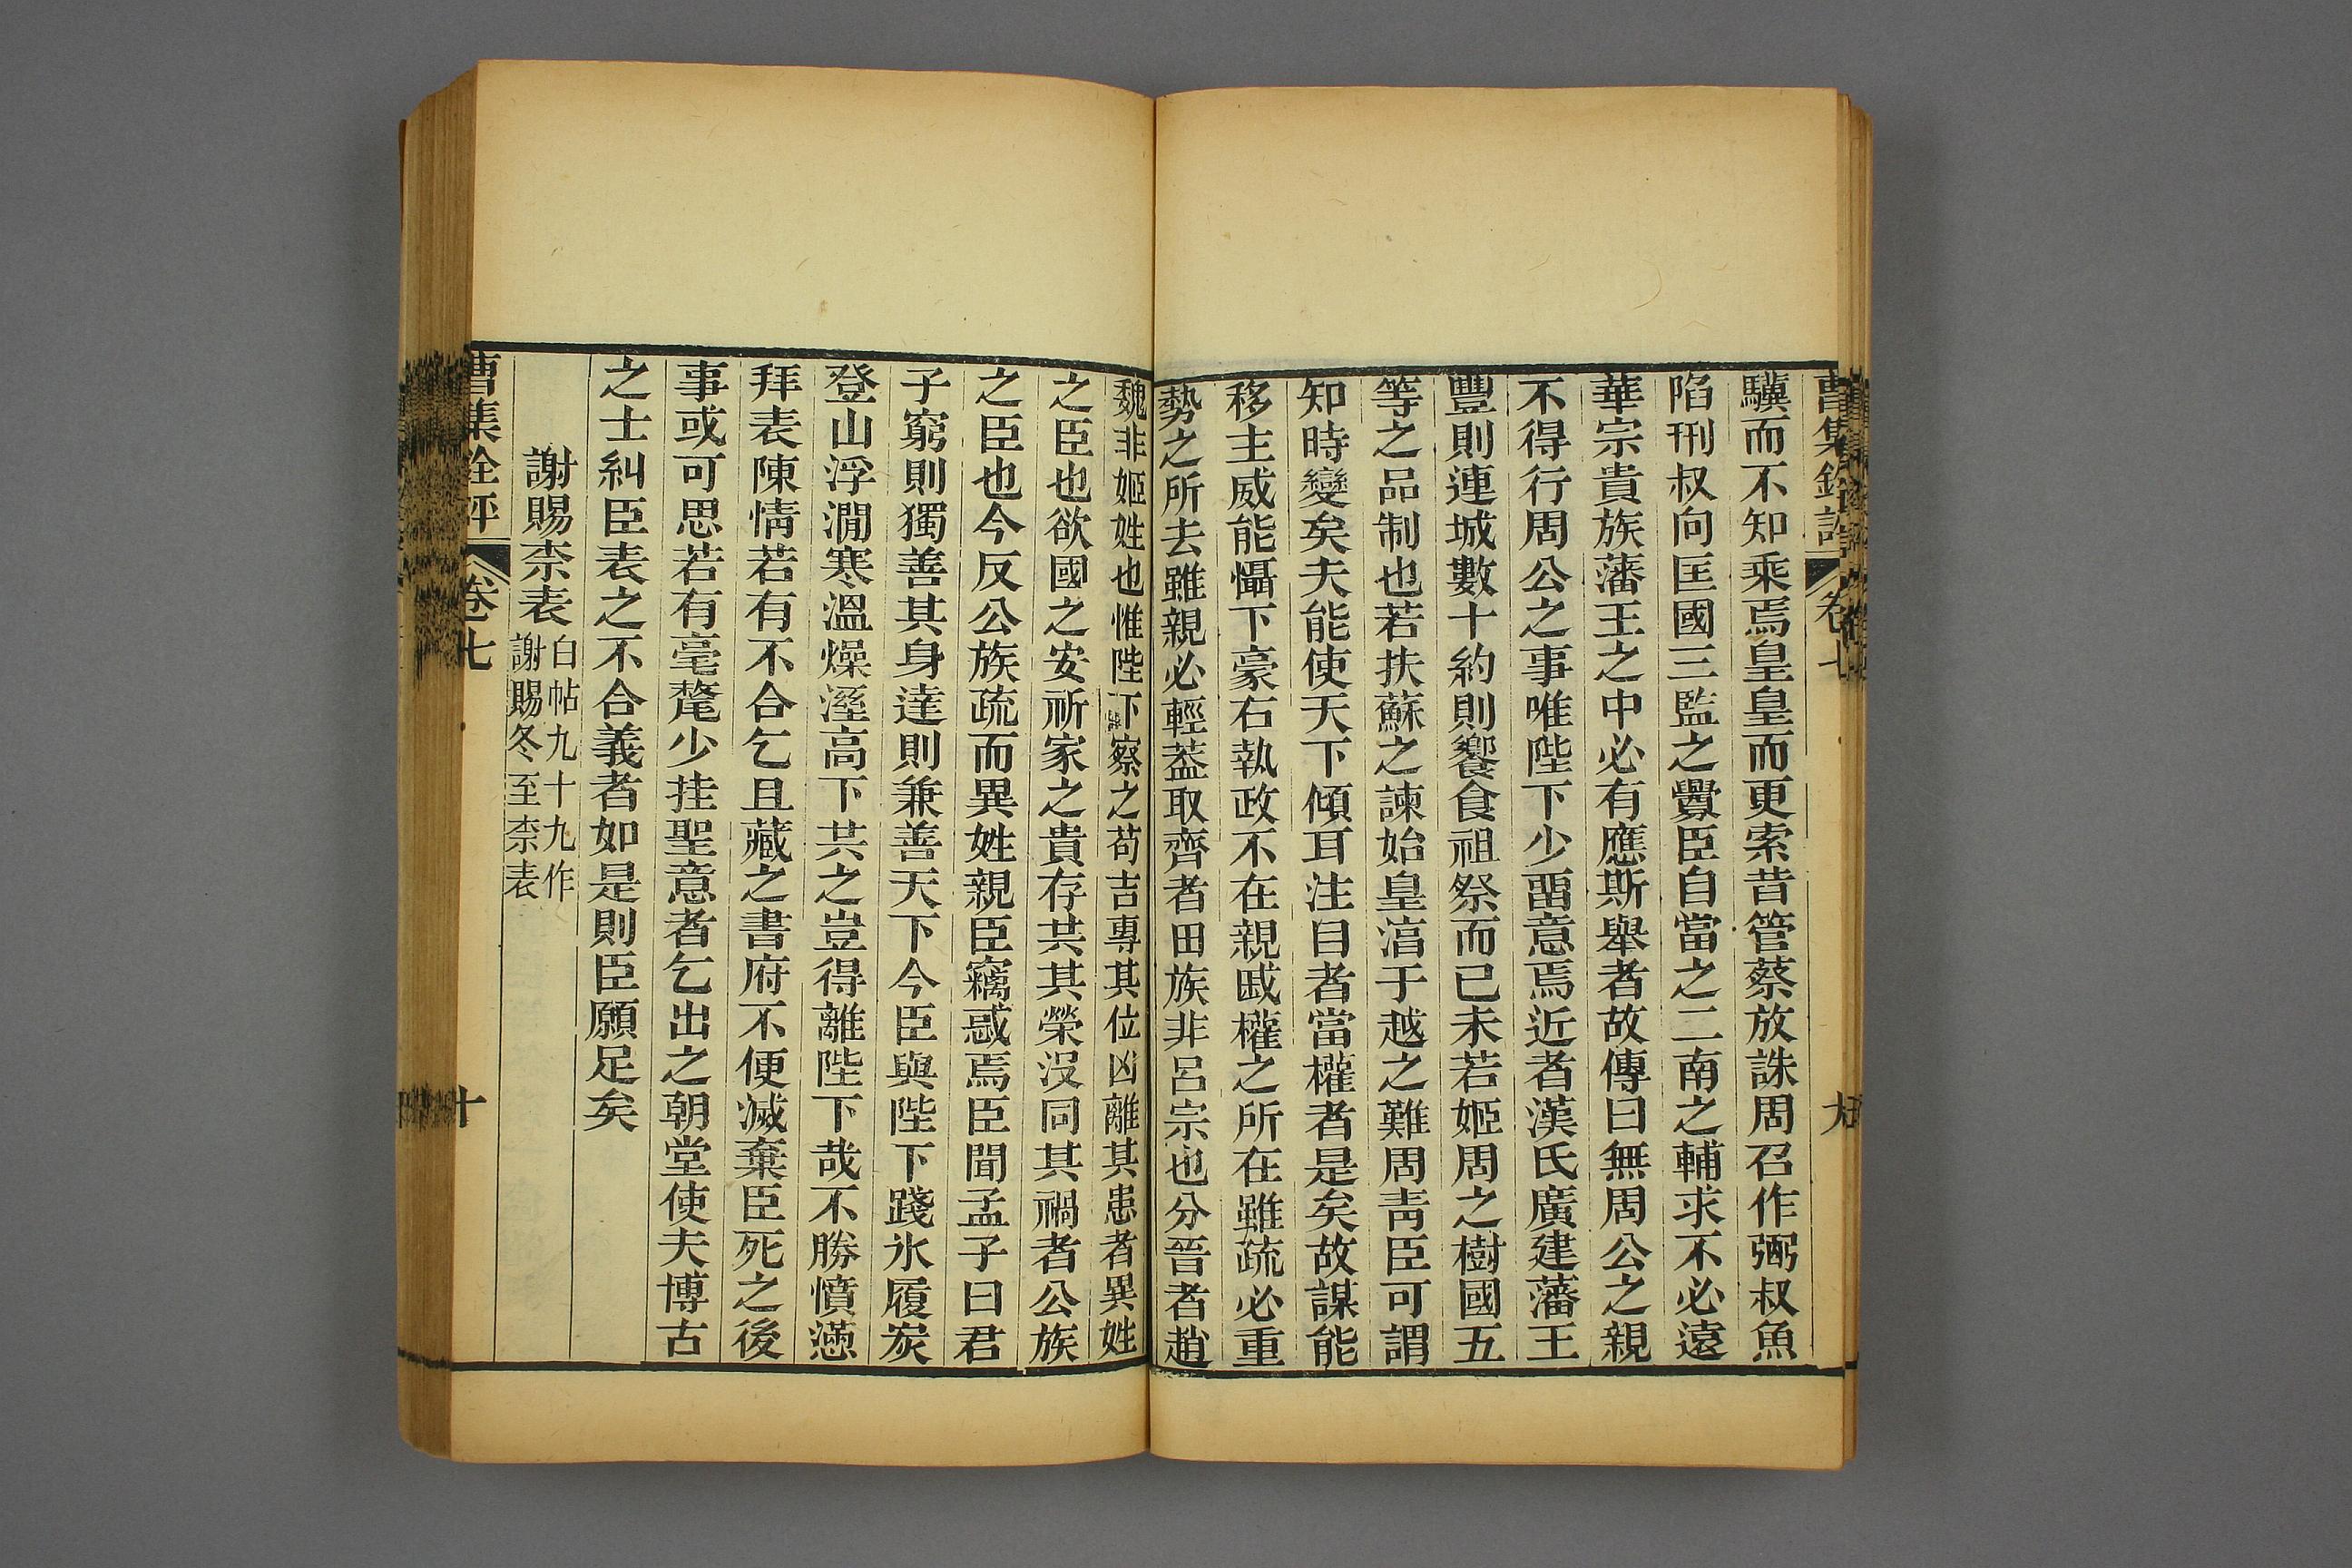 曹集銓評 卷七 九
驥而不知乘焉皇皇而更索昔管蔡放誅周召作弼叔魚
陷刑叔向匡國三監之釁臣自當之二南之輔求不必遠
華宗貴族藩王之中必有應斯舉者故傳曰無周公之親
不得行周公之事唯陛下少畱意焉近者漢氏廣建藩王
豐則連城數十約則饗食祖祭而已未若姬周之樹國五
等之品制也若扶蘇之諫始皇湻于越之難周靑臣可謂
知時變矣夫能使天下傾耳注目者當權者是矣故謀能
移主威能懾下豪右執政不在親戚權之所在雖疏必重
勢之所去雖親必輕葢取齊者田族非呂宗也分晉者趙
魏非姬姓也惟陛下察之苟吉專其位凶離其患者異姓
之臣也欲國之安祈家之貴存共其榮沒同其禍者公族
之臣也今反公族疏而異姓親臣竊惑焉臣聞孟子曰君
子窮則獨善其身達則兼善天下今臣與陛下踐氷履炭
登山浮澗寒溫燥溼高下共之豈得離陛下哉不勝憤懣
拜表陳情若有不合乞且藏之書府不便滅棄臣死之後
事或可思若有毫氂少挂聖意者乞出之朝堂使夫博古
之士糾臣表之不合義者如是則臣願足矣
謝賜柰表
白帖九十九作
謝賜冬至柰表
曹集銓評 卷七 十